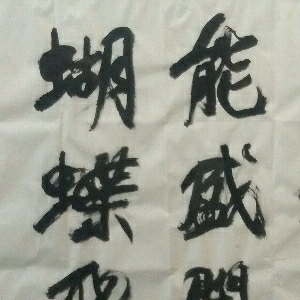 能盛開
蝴蝶